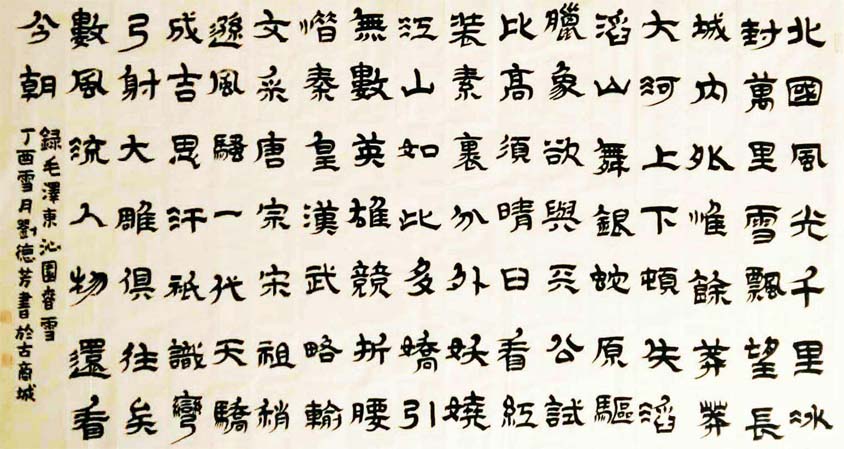 北國風光千里冰
封萬里雪飄望長
城內外惟餘莽莽
大河上下頓失滔
滔山舞銀蛇原驅
臘象欲與天公試
比高須晴日看紅
裝素裹分外妖嬈
江山如此多嬌引
無數英雄競折腰
惜秦皇漢武略輸
文采唐宗宋祖稍
遜風騷一代天驕
成吉思汗祇識彎
弓射大雕俱往矣
數風流人物還看
今朝
錄毛澤東沁園春雪
丁酉雪月劉德芳書於古商城